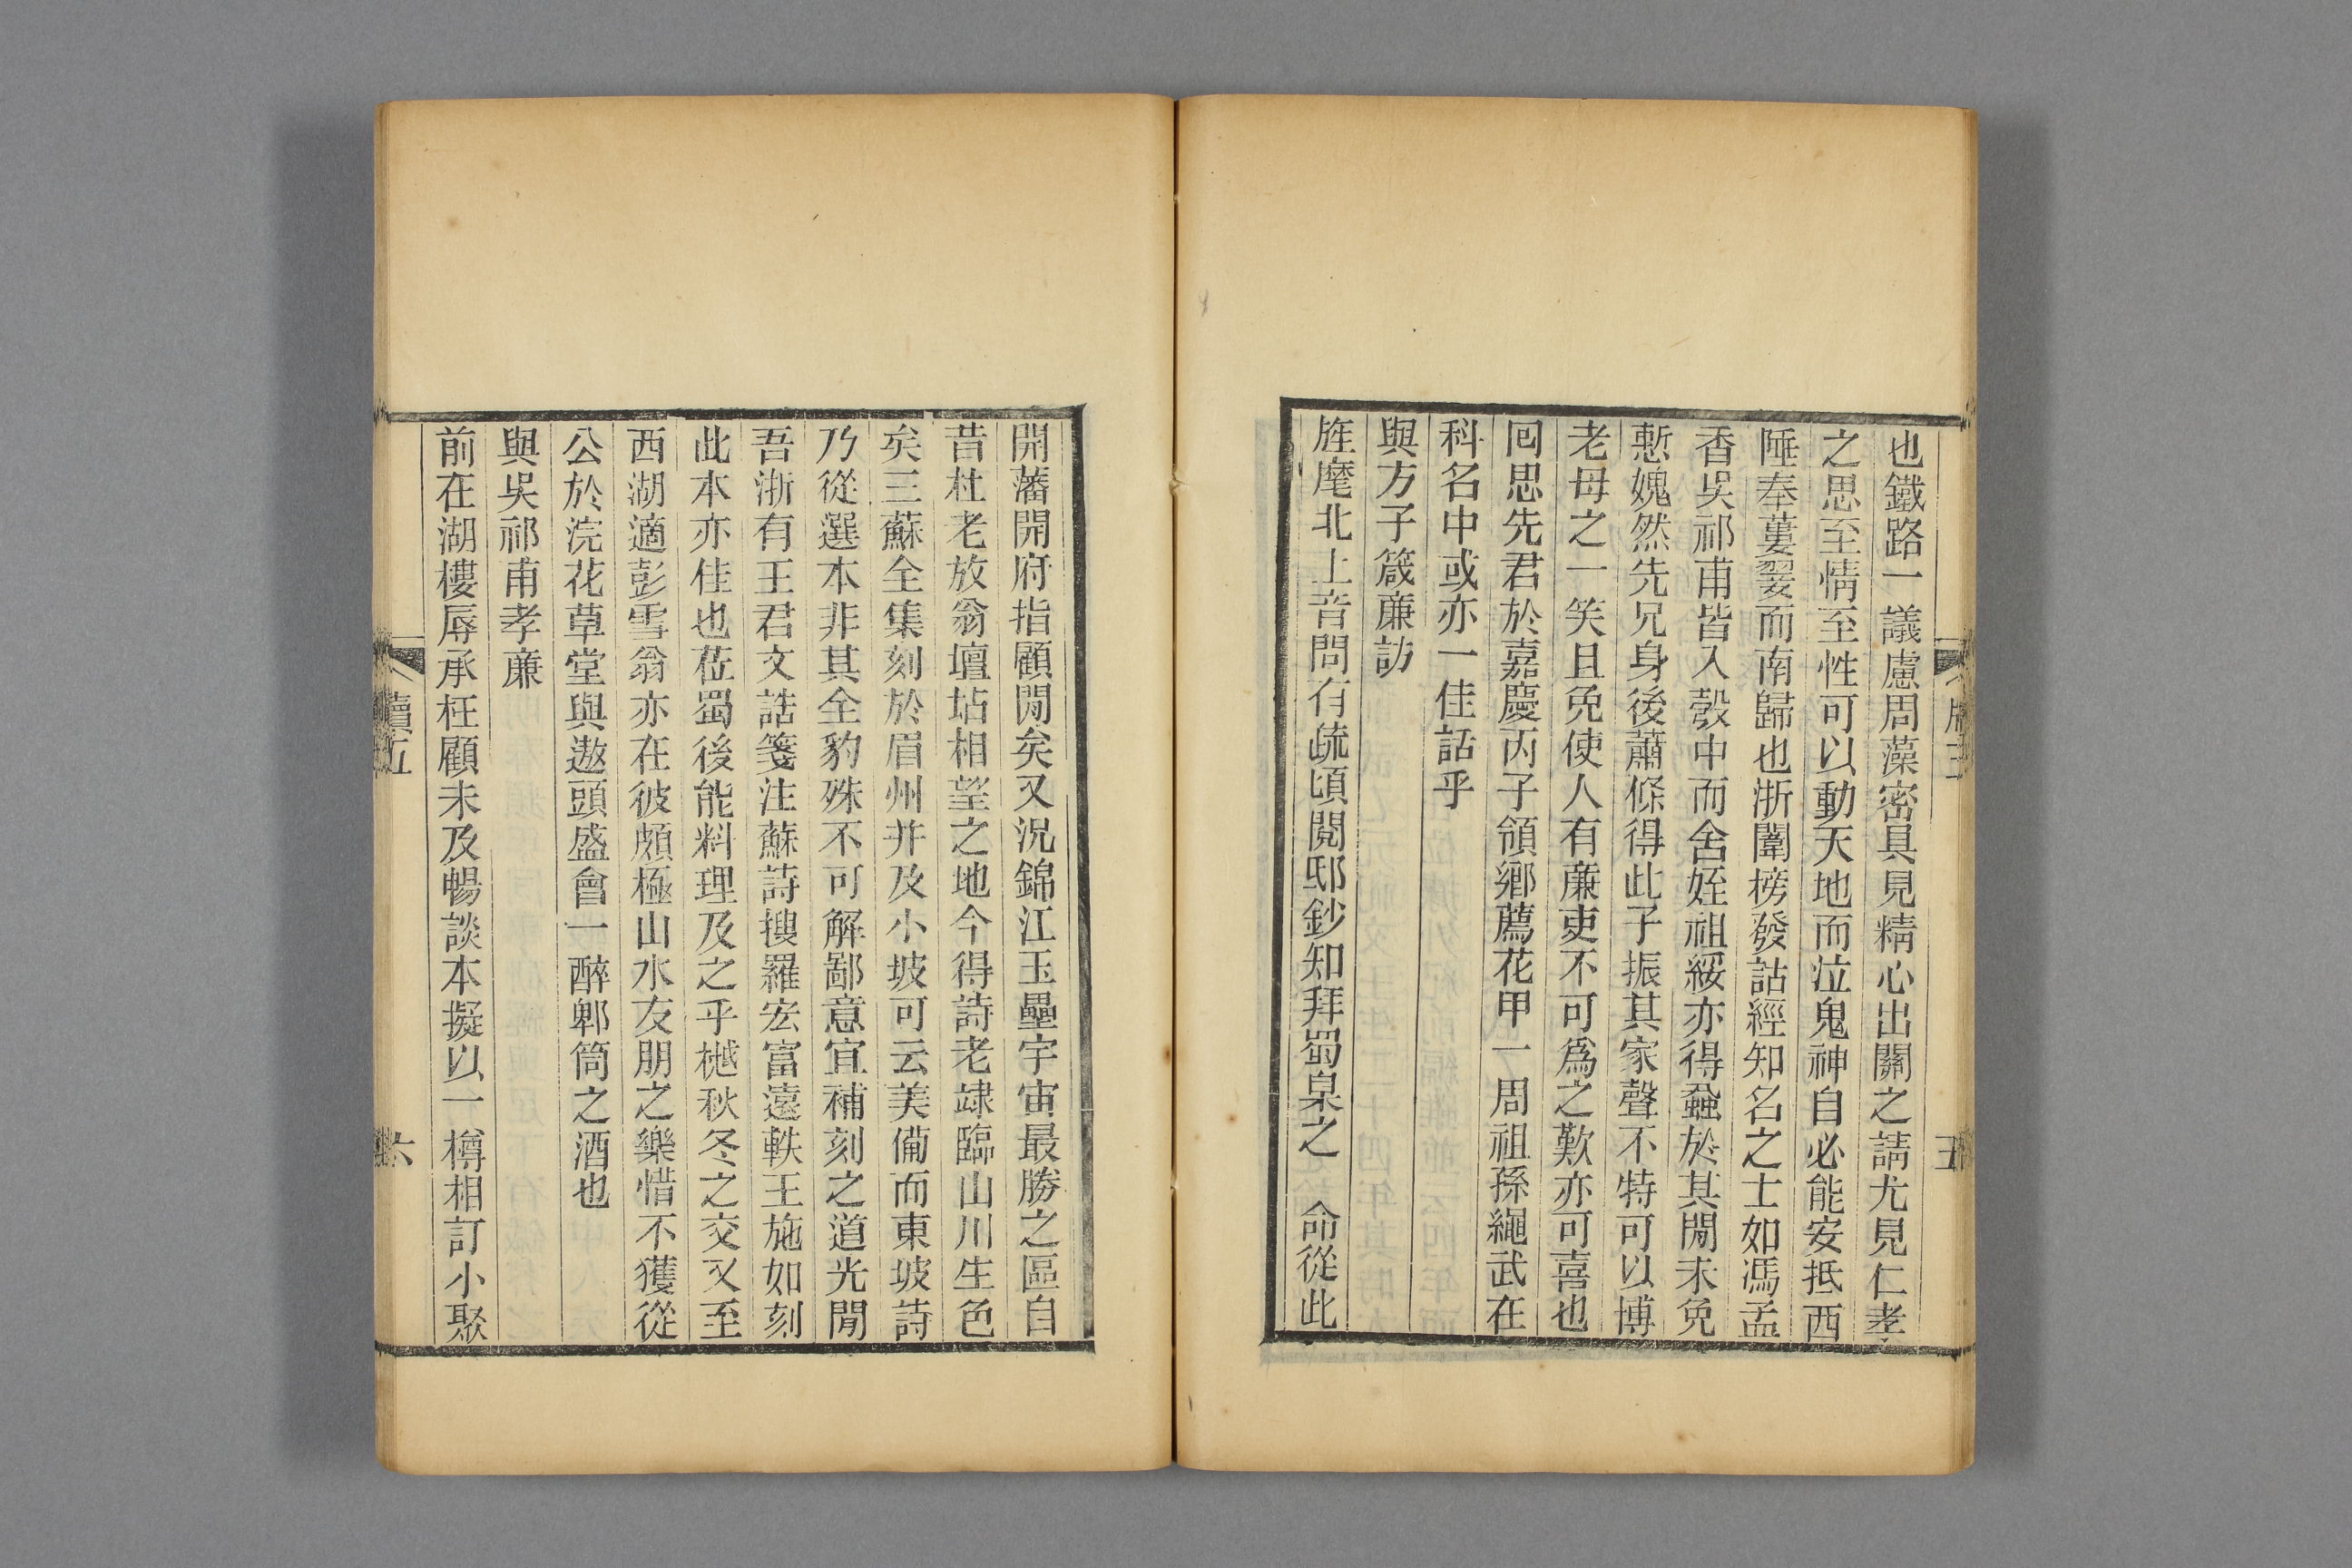 也鐵路一議慮周藻密具見精心出關之請尤見仁孝
之思至情至性可以動天地而泣鬼神自必能安抵西
陲奉蔞翣而南歸也浙闈榜發詁經知名之士如馮孟
香吳祁甫皆入彀中而舍姪祖綏亦得蝨於其閒未免
慙媿然先兄身後蕭條得此子振其家聲不特可以博
老母之一笑且免使人有廉吏不可爲之歎亦可喜也
回思先君於嘉慶丙子領鄉薦花甲一周祖孫繩武在
科名中或亦一佳話乎
與方子箴廉訪
旌麾北上音問冇疏頃閱邸鈔知拜蜀臬之 命從此
五
開藩開府指顧閒矣又況錦江玉壘宇宙最勝之區自
昔杜老放翁壇坫相望之地今得詩老肄臨山川生色
矣三蘇全集刻於眉州并及小坡可云美備而東坡詩
乃從選本非其全豹殊不可解鄙意宜補刻之道光閒
吾浙有王君文誥箋注蘇詩搜羅宏富遠軼王施如刻
此本亦佳也莅蜀後能料理及之乎樾秋冬之交又至
西湖適彭雪翁亦在彼頗極山水友朋之樂惜不獲從
公於浣花草堂與遨頭盛會一醉郫筒之酒也
與吳祁甫孝廉
前在湖樓辱承枉顧未及暢談本擬以一樽相訂小聚
牘五
六